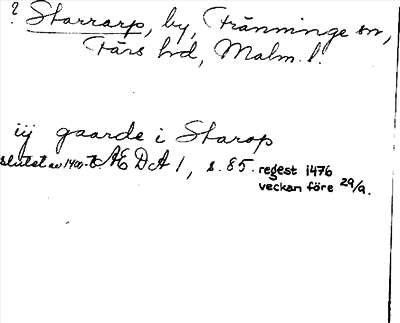 ? Starrarp, by, Tränninge sn,
Färs hd, Malm. l.
iij gaarde i Starop
slutet av 1400-t. ÆDA 1, s. 85. regest 1476
veckan före 29/9.